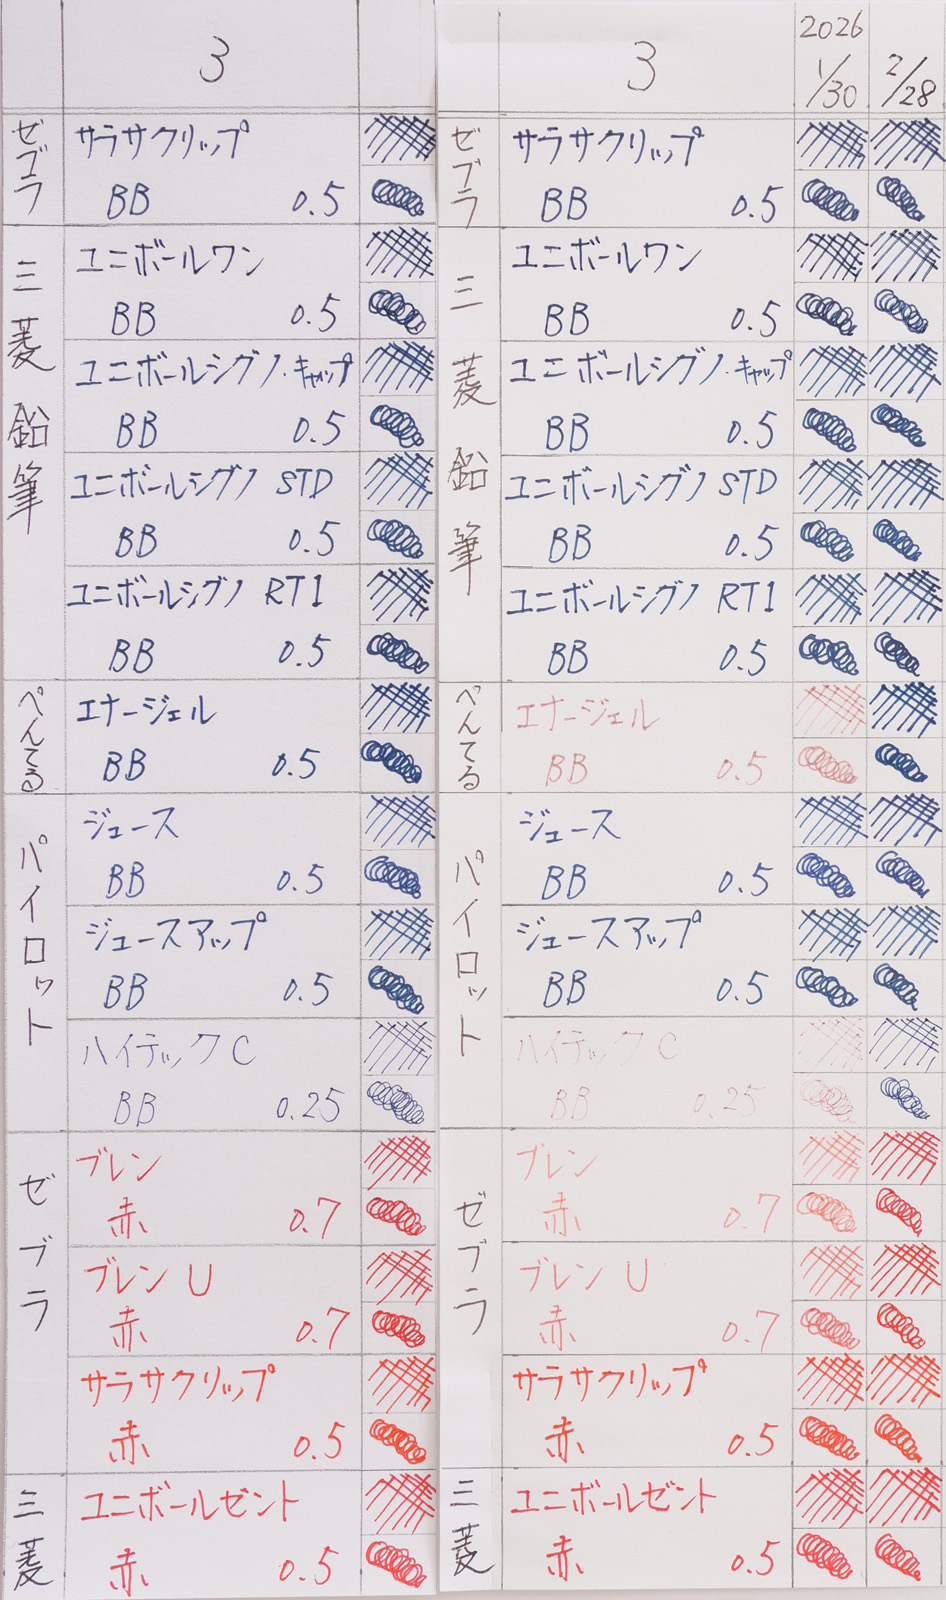 3
ゼブラ
サラサクリップ
BB 0.5
三菱鉛筆
ユニボールワン
BB 0.5
ユニボールシグノ・キャップ
BB 0.5
ユニボールシグノ STD
BB 0.5
ユニボールシグノ RT1
BB 0.5
ぺんてる
エナージェル
BB 0.5
パイロット
ジュース
BB 0.5
ジュースアップ
BB 0.5
ハイテックC
BB 0.25
ゼブラ
ブレン
赤 0.7
ブレン U
赤 0.7
サラサクリップ
赤 0.5
三菱
ユニボールゼント
赤 0.5
3
2026
1/30
2/28
ゼブラ
サラサクリップ
BB 0.5
三菱鉛筆
ユニボールワン
BB 0.5
ユニボールシグノ・キャップ
BB 0.5
ユニボールシグノ STD
BB 0.5
ユニボールシグノ RT1
BB 0.5
ぺんてる
エナージェル
BB 0.5
パイロット
ジュース
BB 0.5
ジュースアップ
BB 0.5
ハイテックC
BB 0.25
ゼブラ
ブレン
赤 0.7
ブレン U
赤 0.7
サラサクリップ
赤 0.5
三菱
ユニボールゼント
赤 0.5